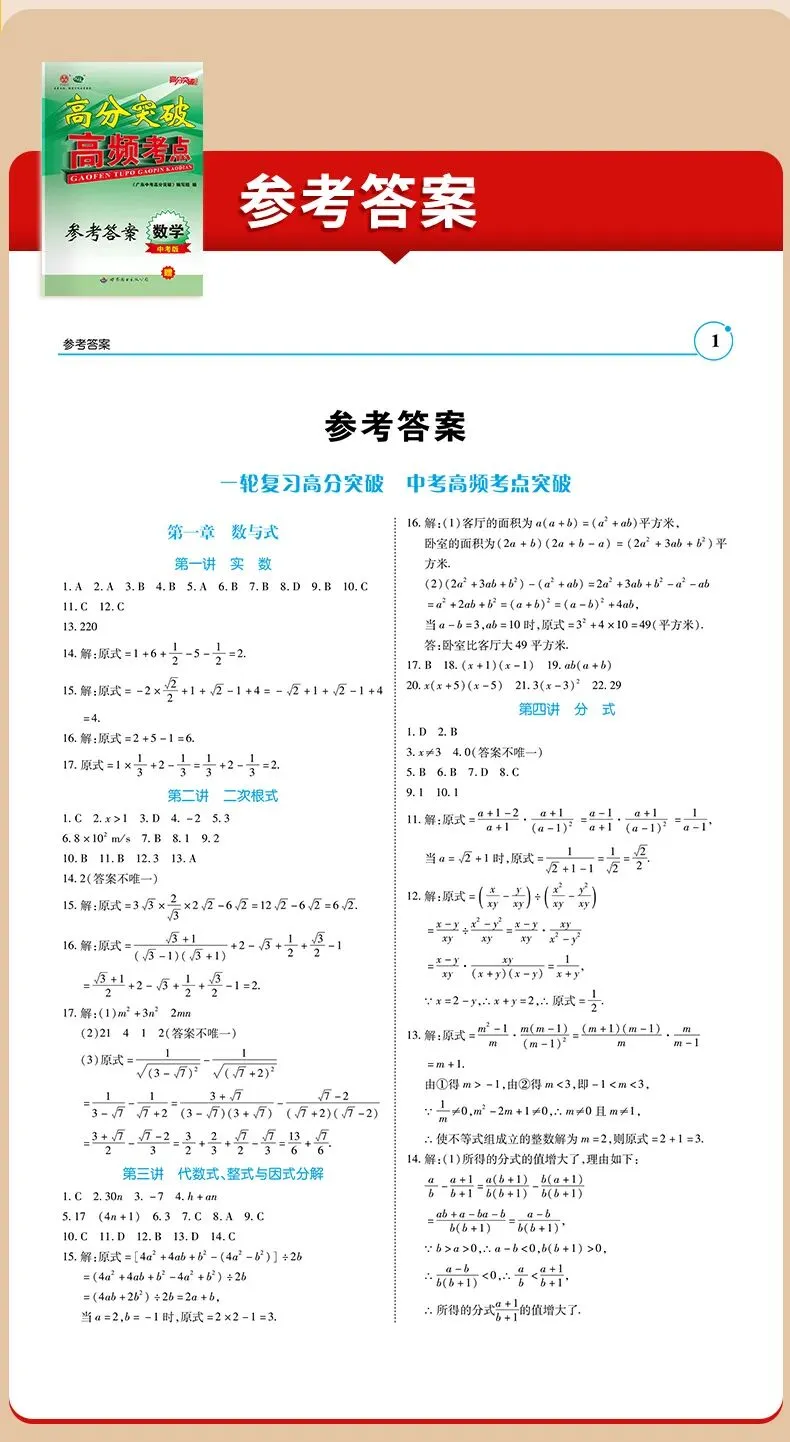 高分突破
高分突破
高频考点
GAOFEN TUPO GAOPIN KAODIAN
《广东中考高分突破》编写组 编
参考答案 数学
中考版
赠
参考答案
参考答案
1
参考答案
一轮复习高分突破 中考高频考点突破
第一章 数与式
第一讲 实 数
1. A 2. A 3. B 4. B 5. A 6. B 7. B 8. D 9. B 10. C
11. C 12. C
13. 220
14. 解:原式=1+6+1/2-5-1/2=2.
15. 解:原式=-2×√2/2+1+√2-1+4=-√2+1+√2-1+4
=4.
16. 解:原式=2+5-1=6.
17. 原式=1×1/3+2-1/3=1/3+2-1/3=2.
第二讲 二次根式
1. C 2. x>1 3. D 4. -2 5. 3
6. 8×10² m/s 7. B 8. 1 9. 2
10. B 11. B 12. 3 13. A
14. 2(答案不唯一)
15. 解:原式=3√3×2/√3×2√2-6√2=12√2-6√2=6√2.
16. 解:原式=(√3+1)/((√3-1)(√3+1))+2-√3+1/2+√3/2-1
=(√3+1)/2+2-√3+1/2+√3/2-1=2.
17. 解:(1)m²+3n² 2mn
(2)21 4 1 2(答案不唯一)
(3)原式=1/√((3-√7)²)-1/√((√7+2)²)
=1/(3-√7)-1/(√7+2)=(3+√7)/((3-√7)(3+√7))-(√7-2)/((√7+2)(√7-2))
=(3+√7)/2-(√7-2)/3=3/2+2/3+√7/2-√7/3=13/6+√7/6.
第三讲 代数式、整式与因式分解
1. C 2. 30n 3. -7 4. h+an
5. 17 (4n+1) 6. 3 7. C 8. A 9. C
10. C 11. D 12. B 13. D 14. C
15. 解:原式=[4a²+4ab+b²-(4a²-b²)]÷2b
=(4a²+4ab+b²-4a²+b²)÷2b
=(4ab+2b²)÷2b=2a+b,
当a=2,b=-1时,原式=2×2-1=3.
16. 解:(1)客厅的面积为a(a+b)=(a²+ab)平方米,
卧室的面积为(2a+b)(2a+b-a)=(2a²+3ab+b²)平
方米.
(2)(2a²+3ab+b²)-(a²+ab)=2a²+3ab+b²-a²-ab
=a²+2ab+b²=(a+b)²=(a-b)²+4ab,
当a-b=3,ab=10时,原式=3²+4×10=49(平方米).
答:卧室比客厅大49平方米.
17. B 18. (x+1)(x-1) 19. ab(a+b)
20. x(x+5)(x-5) 21. 3(x-3)² 22. 29
第四讲 分 式
1. D 2. B
3. x≠3 4. 0(答案不唯一)
5. B 6. B 7. D 8. C
9. 1 10. 1
11. 解:原式=(a+1-2)/(a+1)·(a+1)/(a-1)²=(a-1)/(a+1)·(a+1)/(a-1)²=1/(a-1),
当a=√2+1时,原式=1/(√2+1-1)=1/√2=√2/2.
12. 解:原式=(x/xy-y/xy)÷(x²/xy-y²/xy)
=(x-y)/xy÷(x²-y²)/xy=(x-y)/xy·xy/(x²-y²)
=(x-y)/xy·xy/((x+y)(x-y))=1/(x+y),
∵x=2-y,∴x+y=2,∴原式=1/2.
13. 解:原式=(m²-1)/m·m(m-1)/(m-1)²=(m+1)(m-1)/m·m/(m-1)
=m+1.
由①得m>-1,由②得m<3,即-1<m<3,
∵1/m≠0,m²-2m+1≠0,∴m≠0且m≠1,
∴使不等式组成立的整数解为m=2,则原式=2+1=3.
14. 解:(1)所得的分式的值增大了,理由如下:
a/b-(a+1)/(b+1)=a(b+1)/b(b+1)-b(a+1)/b(b+1)
=(ab+a-ba-b)/b(b+1)=(a-b)/b(b+1),
∵b>a>0,∴a-b<0,b(b+1)>0,
∴(a-b)/b(b+1)<0,∴a/b<(a+1)/(b+1),
∴所得的分式(a+1)/(b+1)的值增大了.